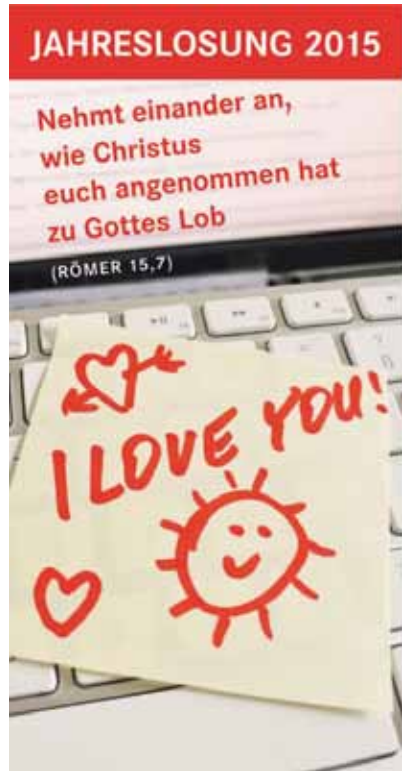 JAHRESLOSUNG 2015
Nehmt einander an,
wie Christus
euch angenommen hat
zu Gottes Lob
(RÖMER 15,7)
I LOVE YOU!